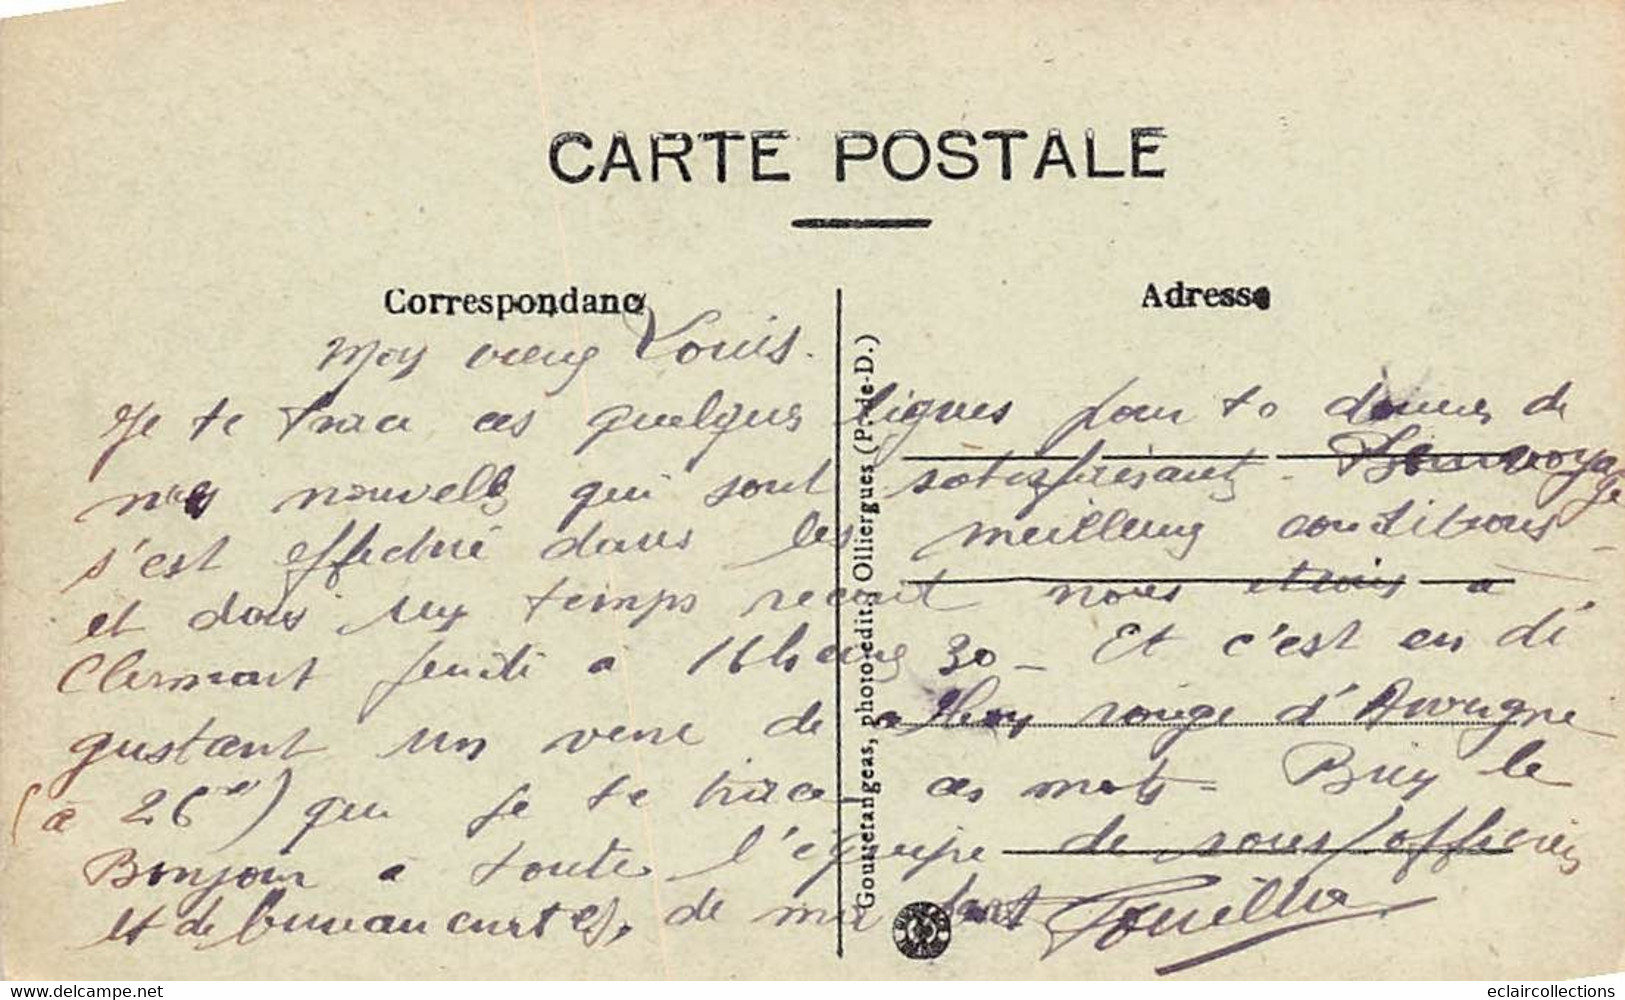 CARTE POSTALE
Correspondance
Adresse
Mon vieux Louis.
Je te trace ces quelques lignes pour te donner de
mes nouvelles qui sont satisfaisantes. Bon voyage
s'est effectué dans les meilleures conditions
et dans un temps record nous étions a
Clermont jeudi a 16 heures 30 - Et c'est en dé
gustant un verre de vieux rouge d'Auvergne
(a 26 ) que je te trace ces mots - Bien le
Bonjour a toute l'équipe de sous/officiers
et de de ma part
Gouttefangeas, photo-édit., Olliergues (P.-de-D.)
eclaircollections
www.delcampe.net